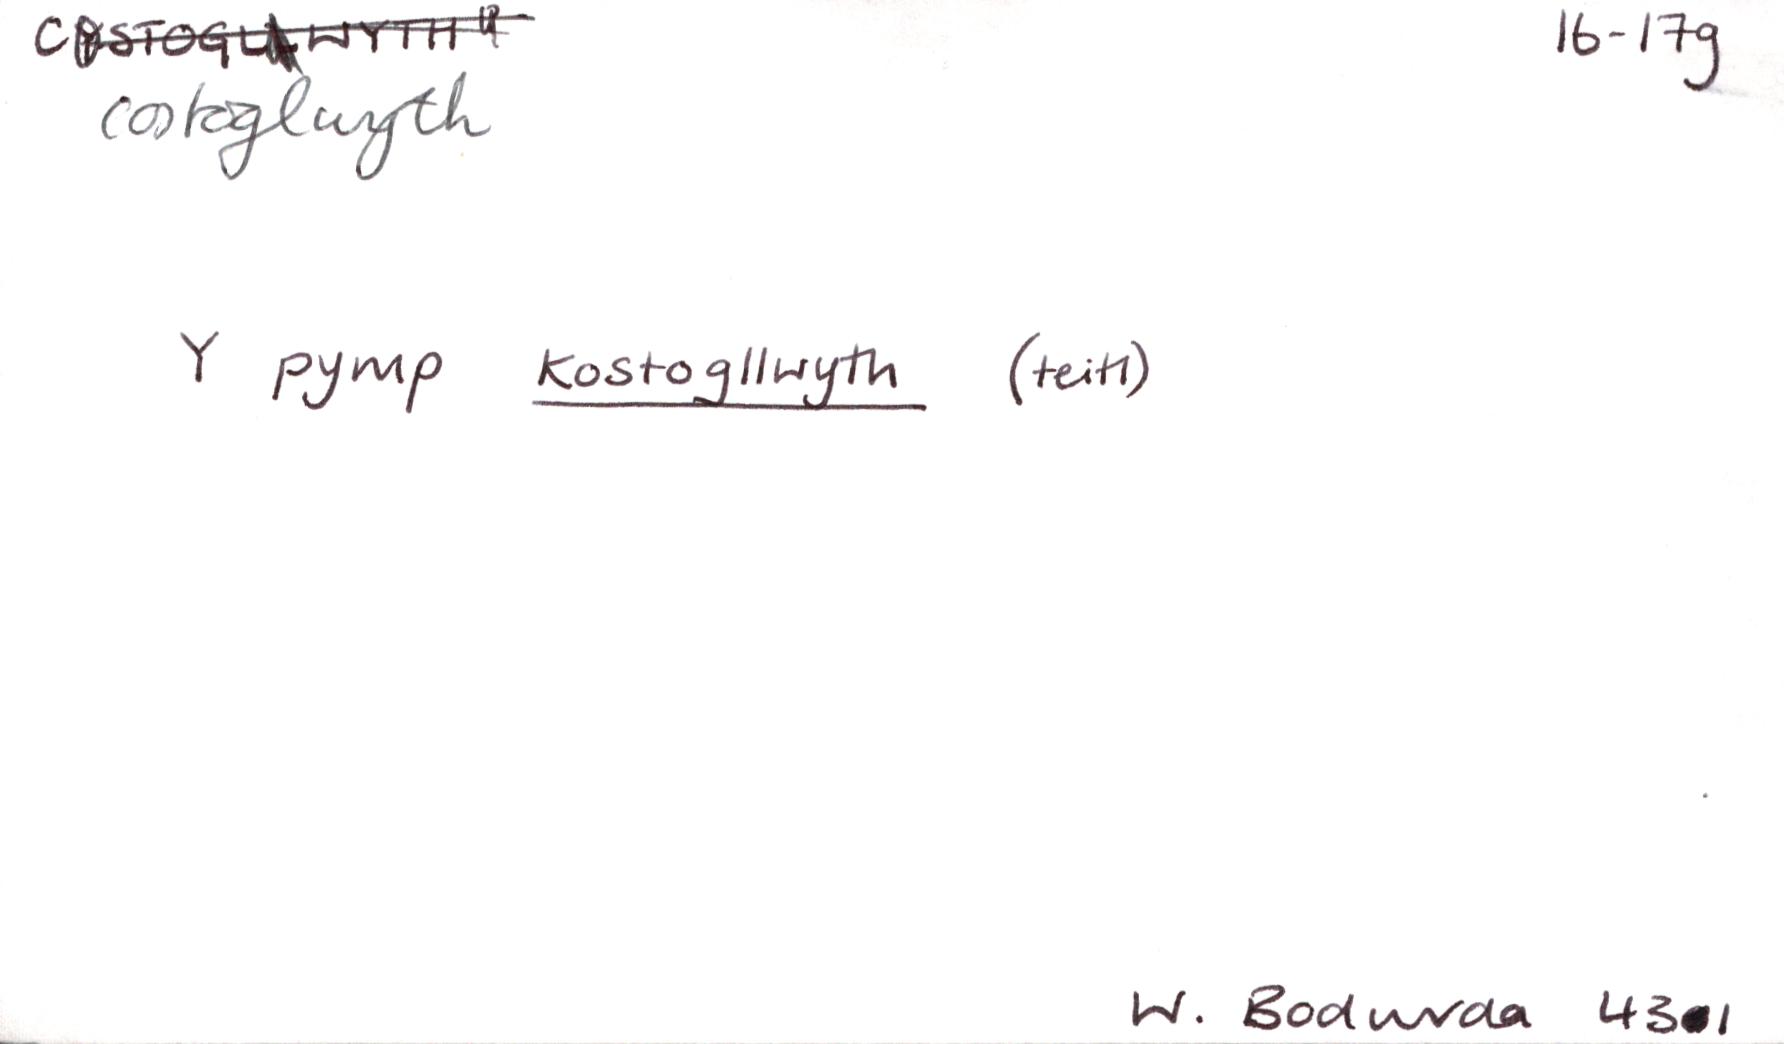 COSTOGLWYTH 16-17g
costoglwyth
Y pymp kostogllwyth (teitl)
W. Bodwrda 431